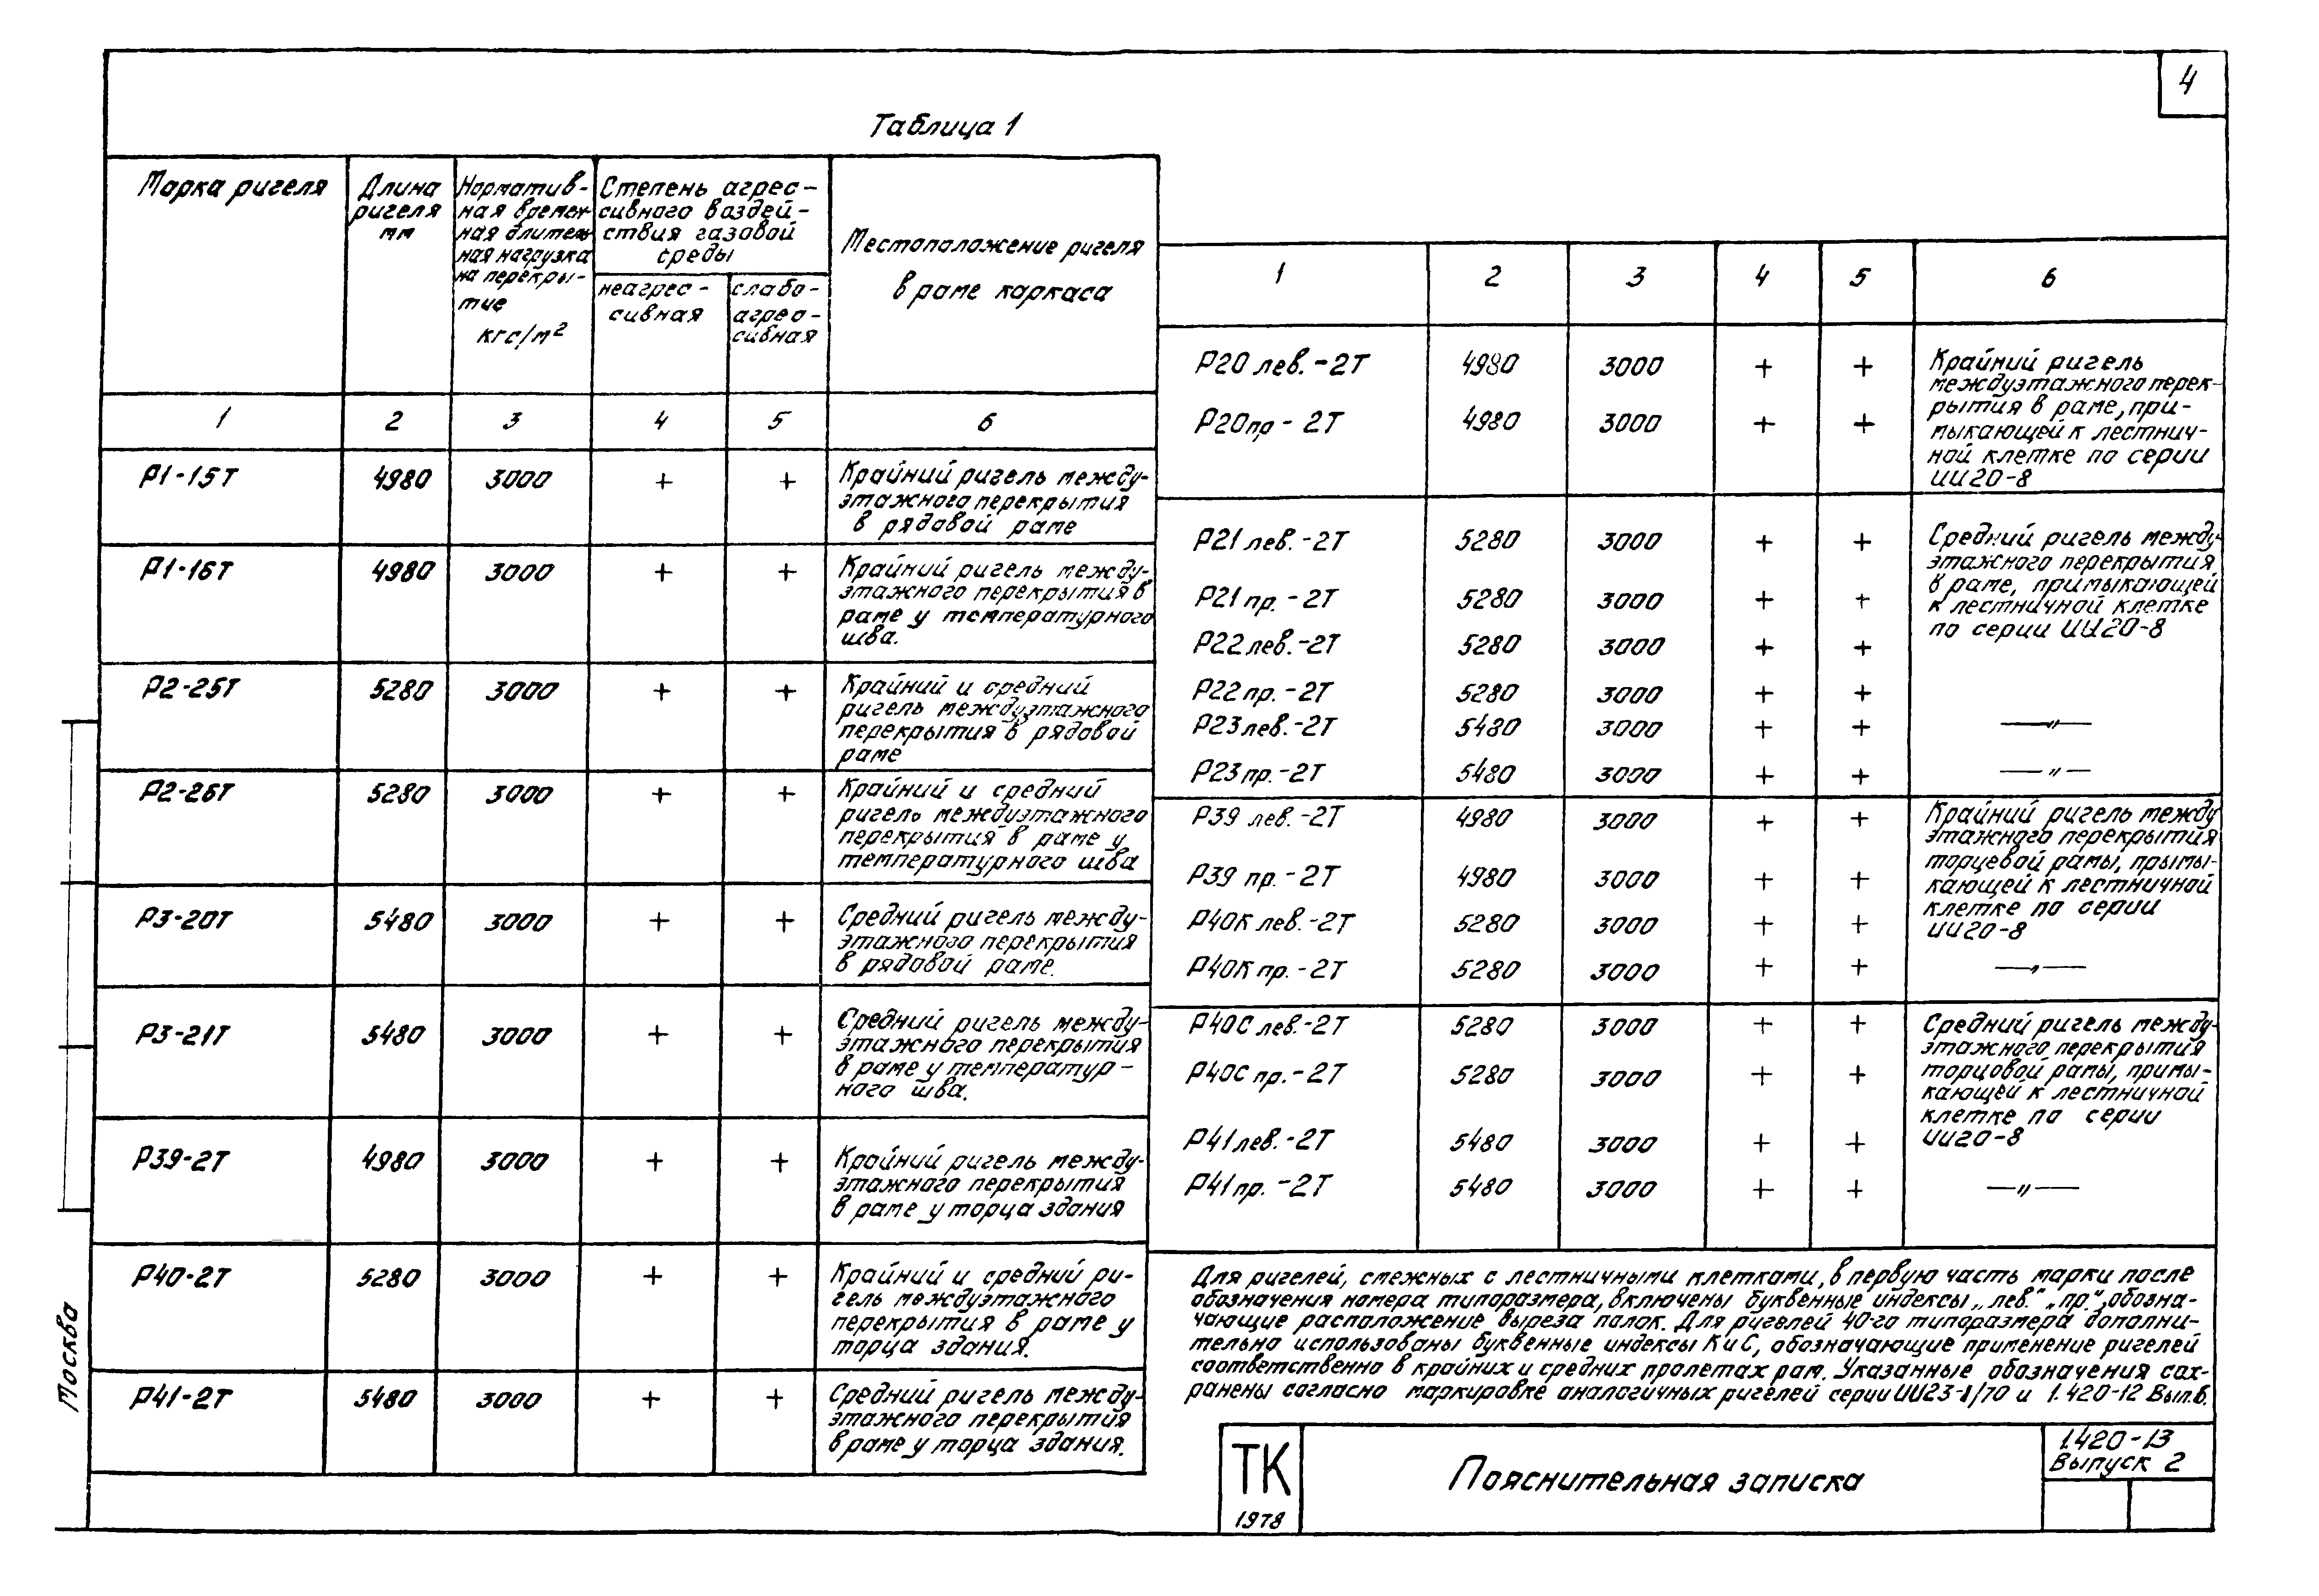 4
Таблица 1
Марка ригеля
Длина
ригеля
мм
Норматив-
ная времен
ная длитель
ная нагрузка
на перекры-
тие
кгс/м²
Степень агрес-
сивного воздей-
ствия газовой
среды
неагрес-
сивная
слабо-
агрес-
сивная
Местоположение ригеля
в раме каркаса
1 2 3 4 5 6
Р1-15Т 4980 3000 + + Крайний ригель между-
этажного перекрытия
в рядовой раме
Р1-16Т 4980 3000 + + Крайний ригель между-
этажного перекрытия в
раме у температурного
шва.
Р2-25Т 5280 3000 + + Крайний и средний
ригель междуэтажного
перекрытия в рядовой
раме
Р2-26Т 5280 3000 + + Крайний и средний
ригель междуэтажного
перекрытия в раме у
температурного шва
Р3-20Т 5480 3000 + + Средний ригель между-
этажного перекрытия
в рядовой раме.
Р3-21Т 5480 3000 + + Средний ригель между-
этажного перекрытия
в раме у температур-
ного шва.
Р39-2Т 4980 3000 + + Крайний ригель между-
этажного перекрытия
в раме у торца здания
Р40-2Т 5280 3000 + + Крайний и средний ри-
гель междуэтажного
перекрытия в раме у
торца здания.
Р41-2Т 5480 3000 + + Средний ригель между-
этажного перекрытия
в раме у торца здания.
1 2 3 4 5 6
Р20 лев.-2Т 4980 3000 + + Крайний ригель
междуэтажного перек-
рытия в раме, при-
Р20пр-2Т 4980 3000 + + мыкающей к лестнич-
ной клетке по серии
ИИ20-8
Р21 лев.-2Т 5280 3000 + + Средний ригель между-
этажного перекрытия
в раме, примыкающей
Р21 пр.-2Т 5280 3000 + + к лестничной клетке
по серии ИИ20-8
Р22 лев.-2Т 5280 3000 + +
Р22 пр.-2Т 5280 3000 + +
Р23 лев.-2Т 5480 3000 + + —"—
Р23 пр.-2Т 5480 3000 + + —"—
Р39 лев.-2Т 4980 3000 + + Крайний ригель между
этажного перекрытия
торцевой рамы, примы-
Р39 пр.-2Т 4980 3000 + + кающей к лестничной
клетке по серии
Р40К лев.-2Т 5280 3000 + + ИИ20-8
Р40К пр.-2Т 5280 3000 + + —"—
Р40С лев.-2Т 5280 3000 + + Средний ригель между-
этажного перекрытия
Р40С пр.-2Т 5280 3000 + + торцовой рамы, примы-
кающей к лестничной
клетке по серии
Р41 лев.-2Т 5480 3000 + + ИИ20-8
Р41 пр.-2Т 5480 3000 + + —"—
Для ригелей, смежных с лестничными клетками, в первую часть марки после
обозначения номера типоразмера, включены буквенные индексы „лев." „пр.", обозна-
чающие расположение выреза полок. Для ригелей 40-го типоразмера дополни-
тельно использованы буквенные индексы К и С, обозначающие применение ригелей
соответственно в крайних и средних пролетах рам. Указанные обозначения сох-
ранены согласно маркировке аналогичных ригелей серии ИИ23-1/70 и 1.420-12 Вып.6.
ТК
1978
Пояснительная записка
1.420-13
Выпуск 2
Москва